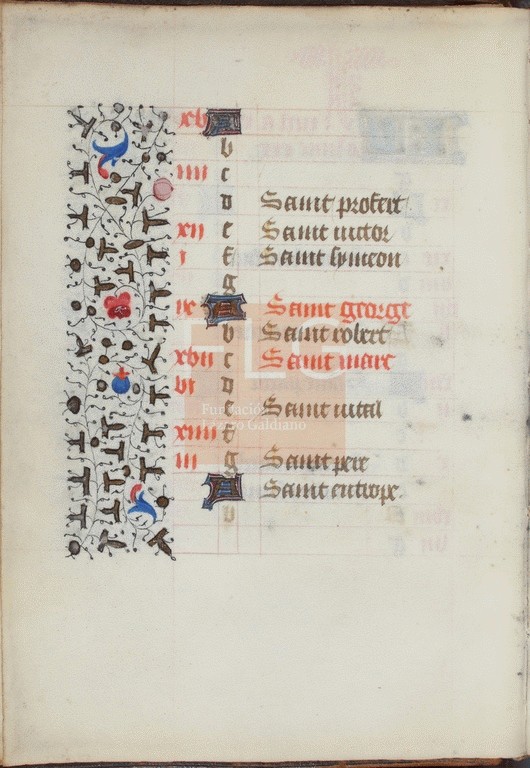 xv A
b
iiii c
d Saint
xii e Saint victor
i f Saint symeon
g
ix A Saint george
b Saint robert
xvii c Saint marc
vi d
e Saint vital
Fundación
Lázaro Galdiano
xiiii f
iii g Saint pere
A Saint eutrope.
b